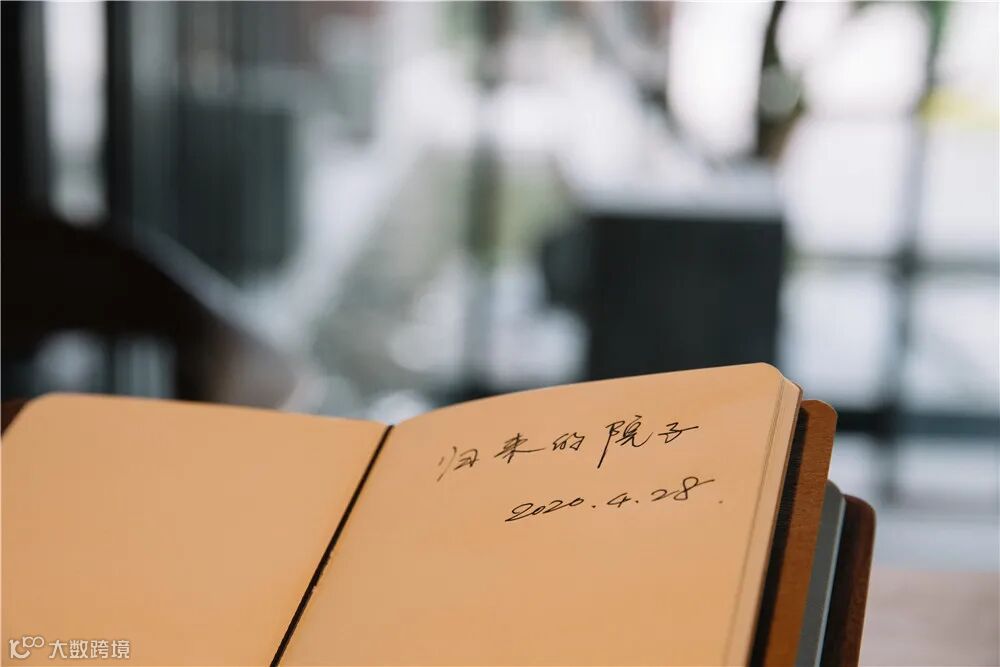 归来的院子
2020.4.28.
大数跨境